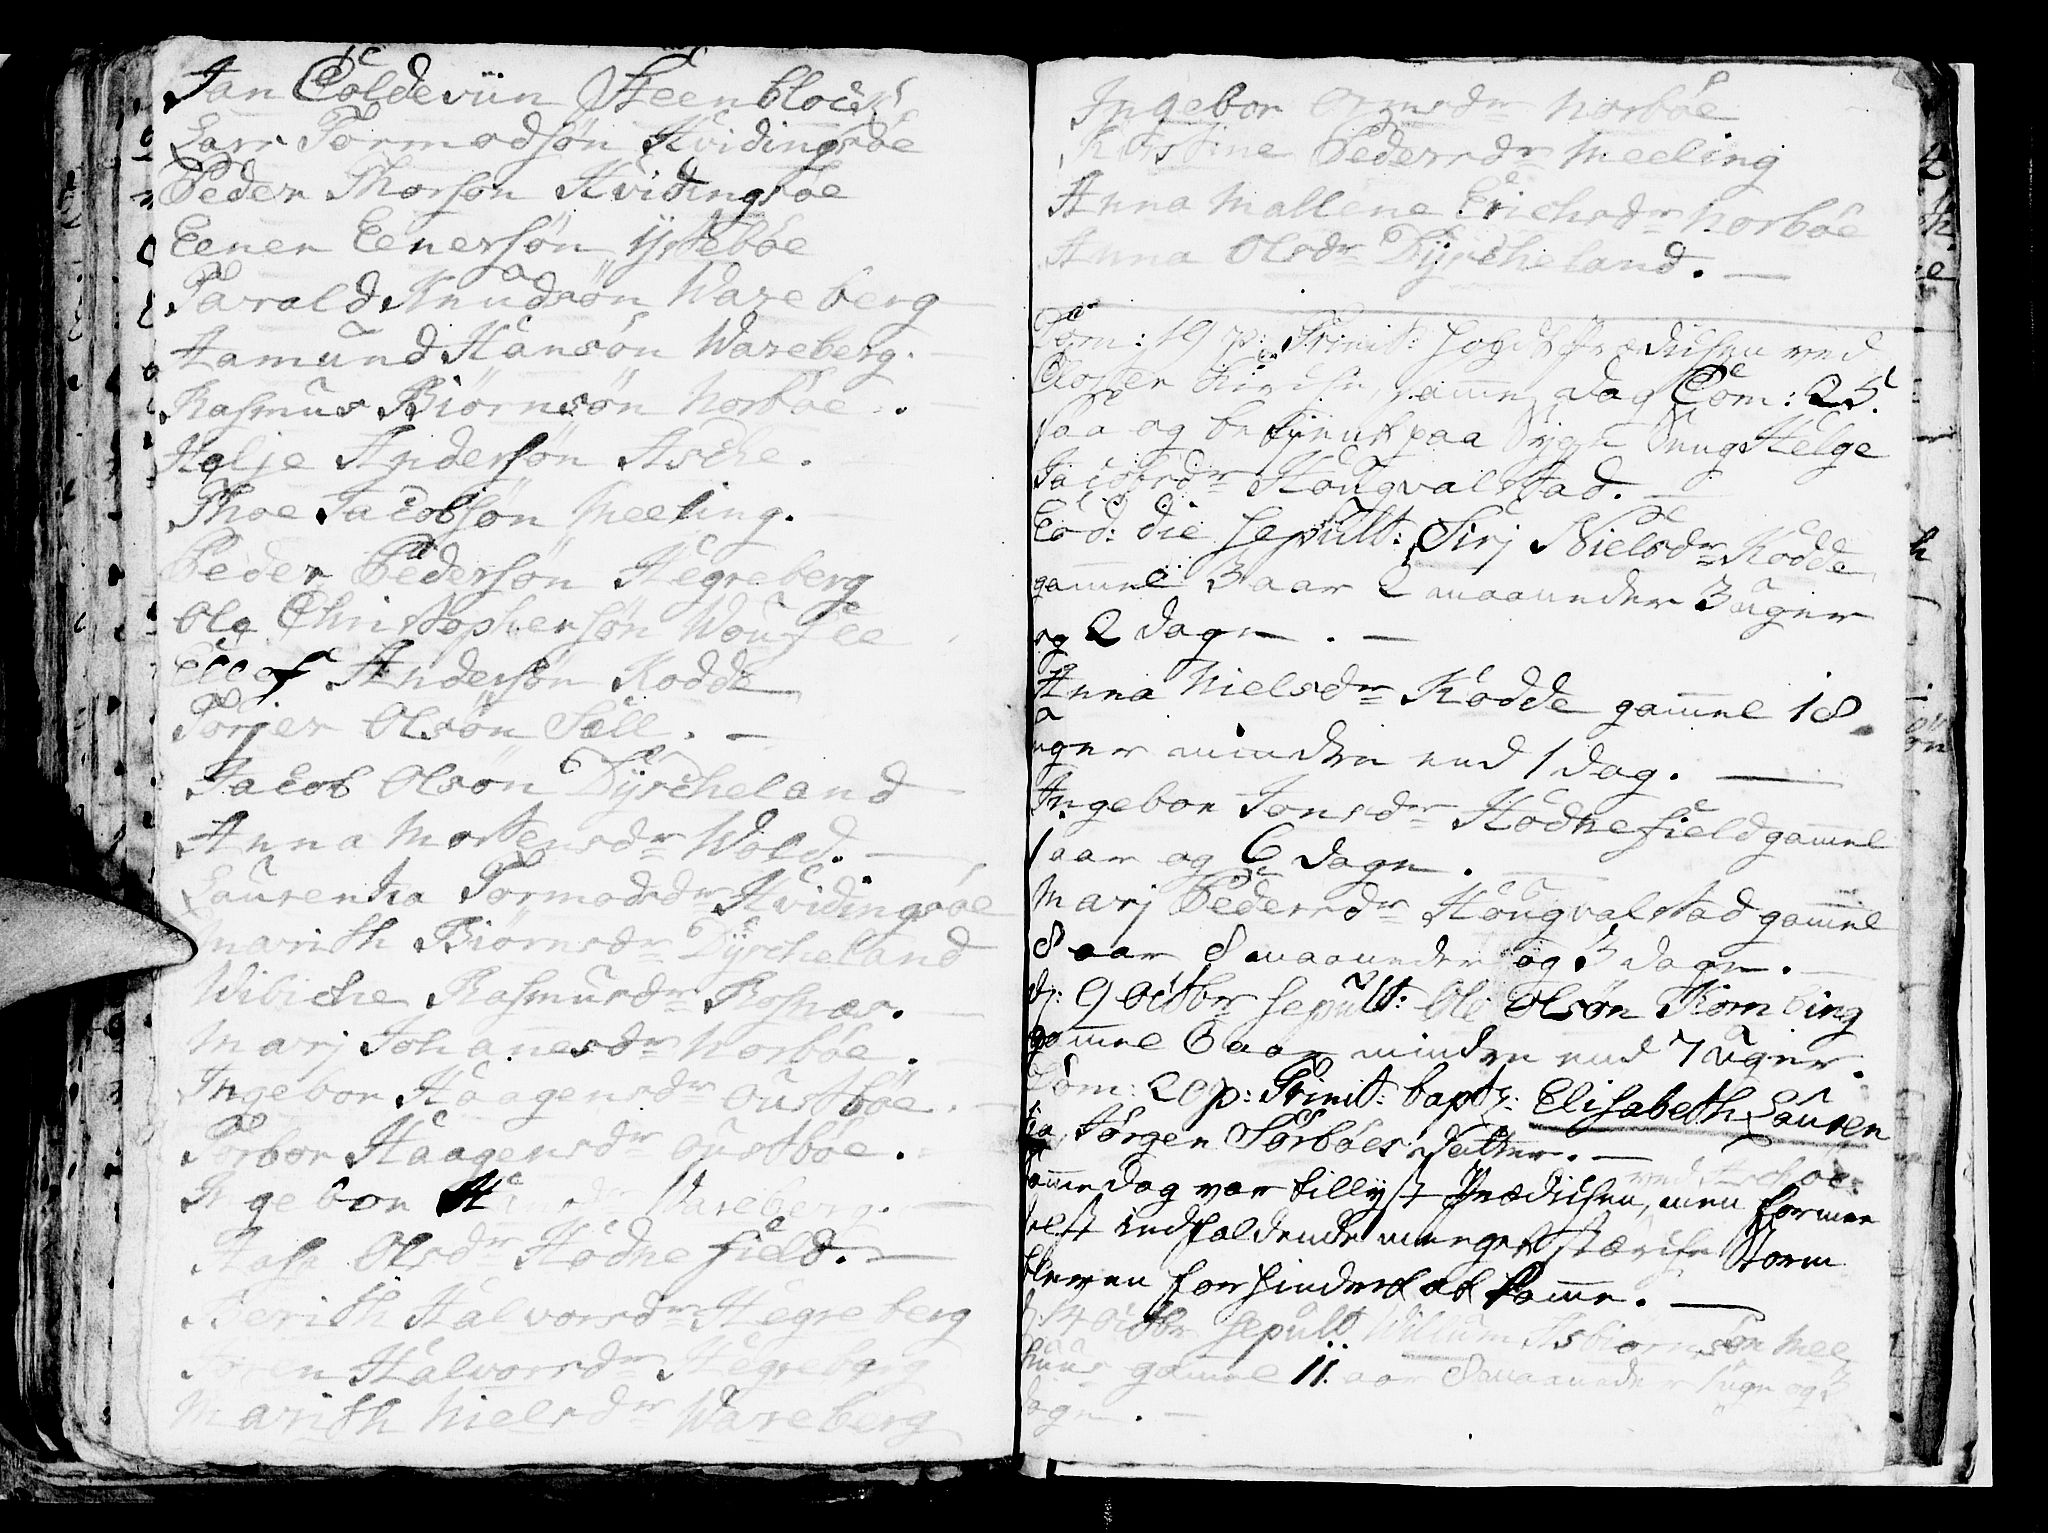 Jan Coldeviin Steenblock
Lars Tormodsøn Hvidingsøe
Peder Thorsøn Hvidingsøe
Eener Eenersøn ÿstebøe
Tarald Knudsøn Wareberg
Aamund Hansøn Wareberg.
Rasmus Biørnsøn Norbøe.
Helje Andersøn Asche.
Thoe Jacobsøn Meeling.
Peder Pedersøn Hegreberg
Ole Christophersøn
Ellef Andersøn Kodde
Torjer Olsøn Sell. —
Jacob Olsøn Dÿrcheland
Anna Mortensdr Wold. —
Laurentia Tormodsdr Hvidingsøe
Marith Biørnsdr Dÿrcheland
Wibiche Rasmusdr Rosnæs.
Marj Johanesdr Norbøe.
Ingebor Haagensdr Oustbøe.
Torbor Haagensdr Oustbøe.
Ingebor Wareberg. —
Aase Olsdr Hodnefield. —
Berith Halvorsdr Hegreberg
Halvorsdr Hegreberg
Marith Nielsdr Wareberg
Ingebor Ormsdr Norbøe
Kirstine Pedersdr Meeling
Anna Mallene Erichsdr Norbøe
Anna Olsdr Dÿrcheland. —
Dom: 19 p: Trinit: holdt Prædichen ved
Closter Kirche, samme dag Com: 25.
saa og betient paa Sÿge Seng Helge
Jacobsdr Hougvalstad. —
Eod: die sepult: Sirj Nielsdr Kodde
gammel 3 aar 2 maaneder 3 uger
og 2 dage. —
Anna Nielsdr Kodde gammel 18
uger minder end 1 dag. —
Ingebor Jonsdr Hodnefield gammel
1 aar og 6 dage. —
Marj Pedersdr Hougvalstad gammel
8 aar 8 maaneder og 3 dage. —
d: 9 Octbr sepult: Ole Olsøn
gammel 6 aar minder end 7 uger.
Dom: 20 p: Trinit: baptz: Elisabeth Lauren
tia, Jørgen Sørbøes datter. —
samme dag var tillÿst Prædichen ved Aschøe, men formedelst
indfaldende meget stærche Storm
bleven forhindret at komme. —
d: 14 Octbr sepult Willum Asbiørnsøn Mee
huus gammel 11. aar 8 maaneder 1 uge og 3
dage. —